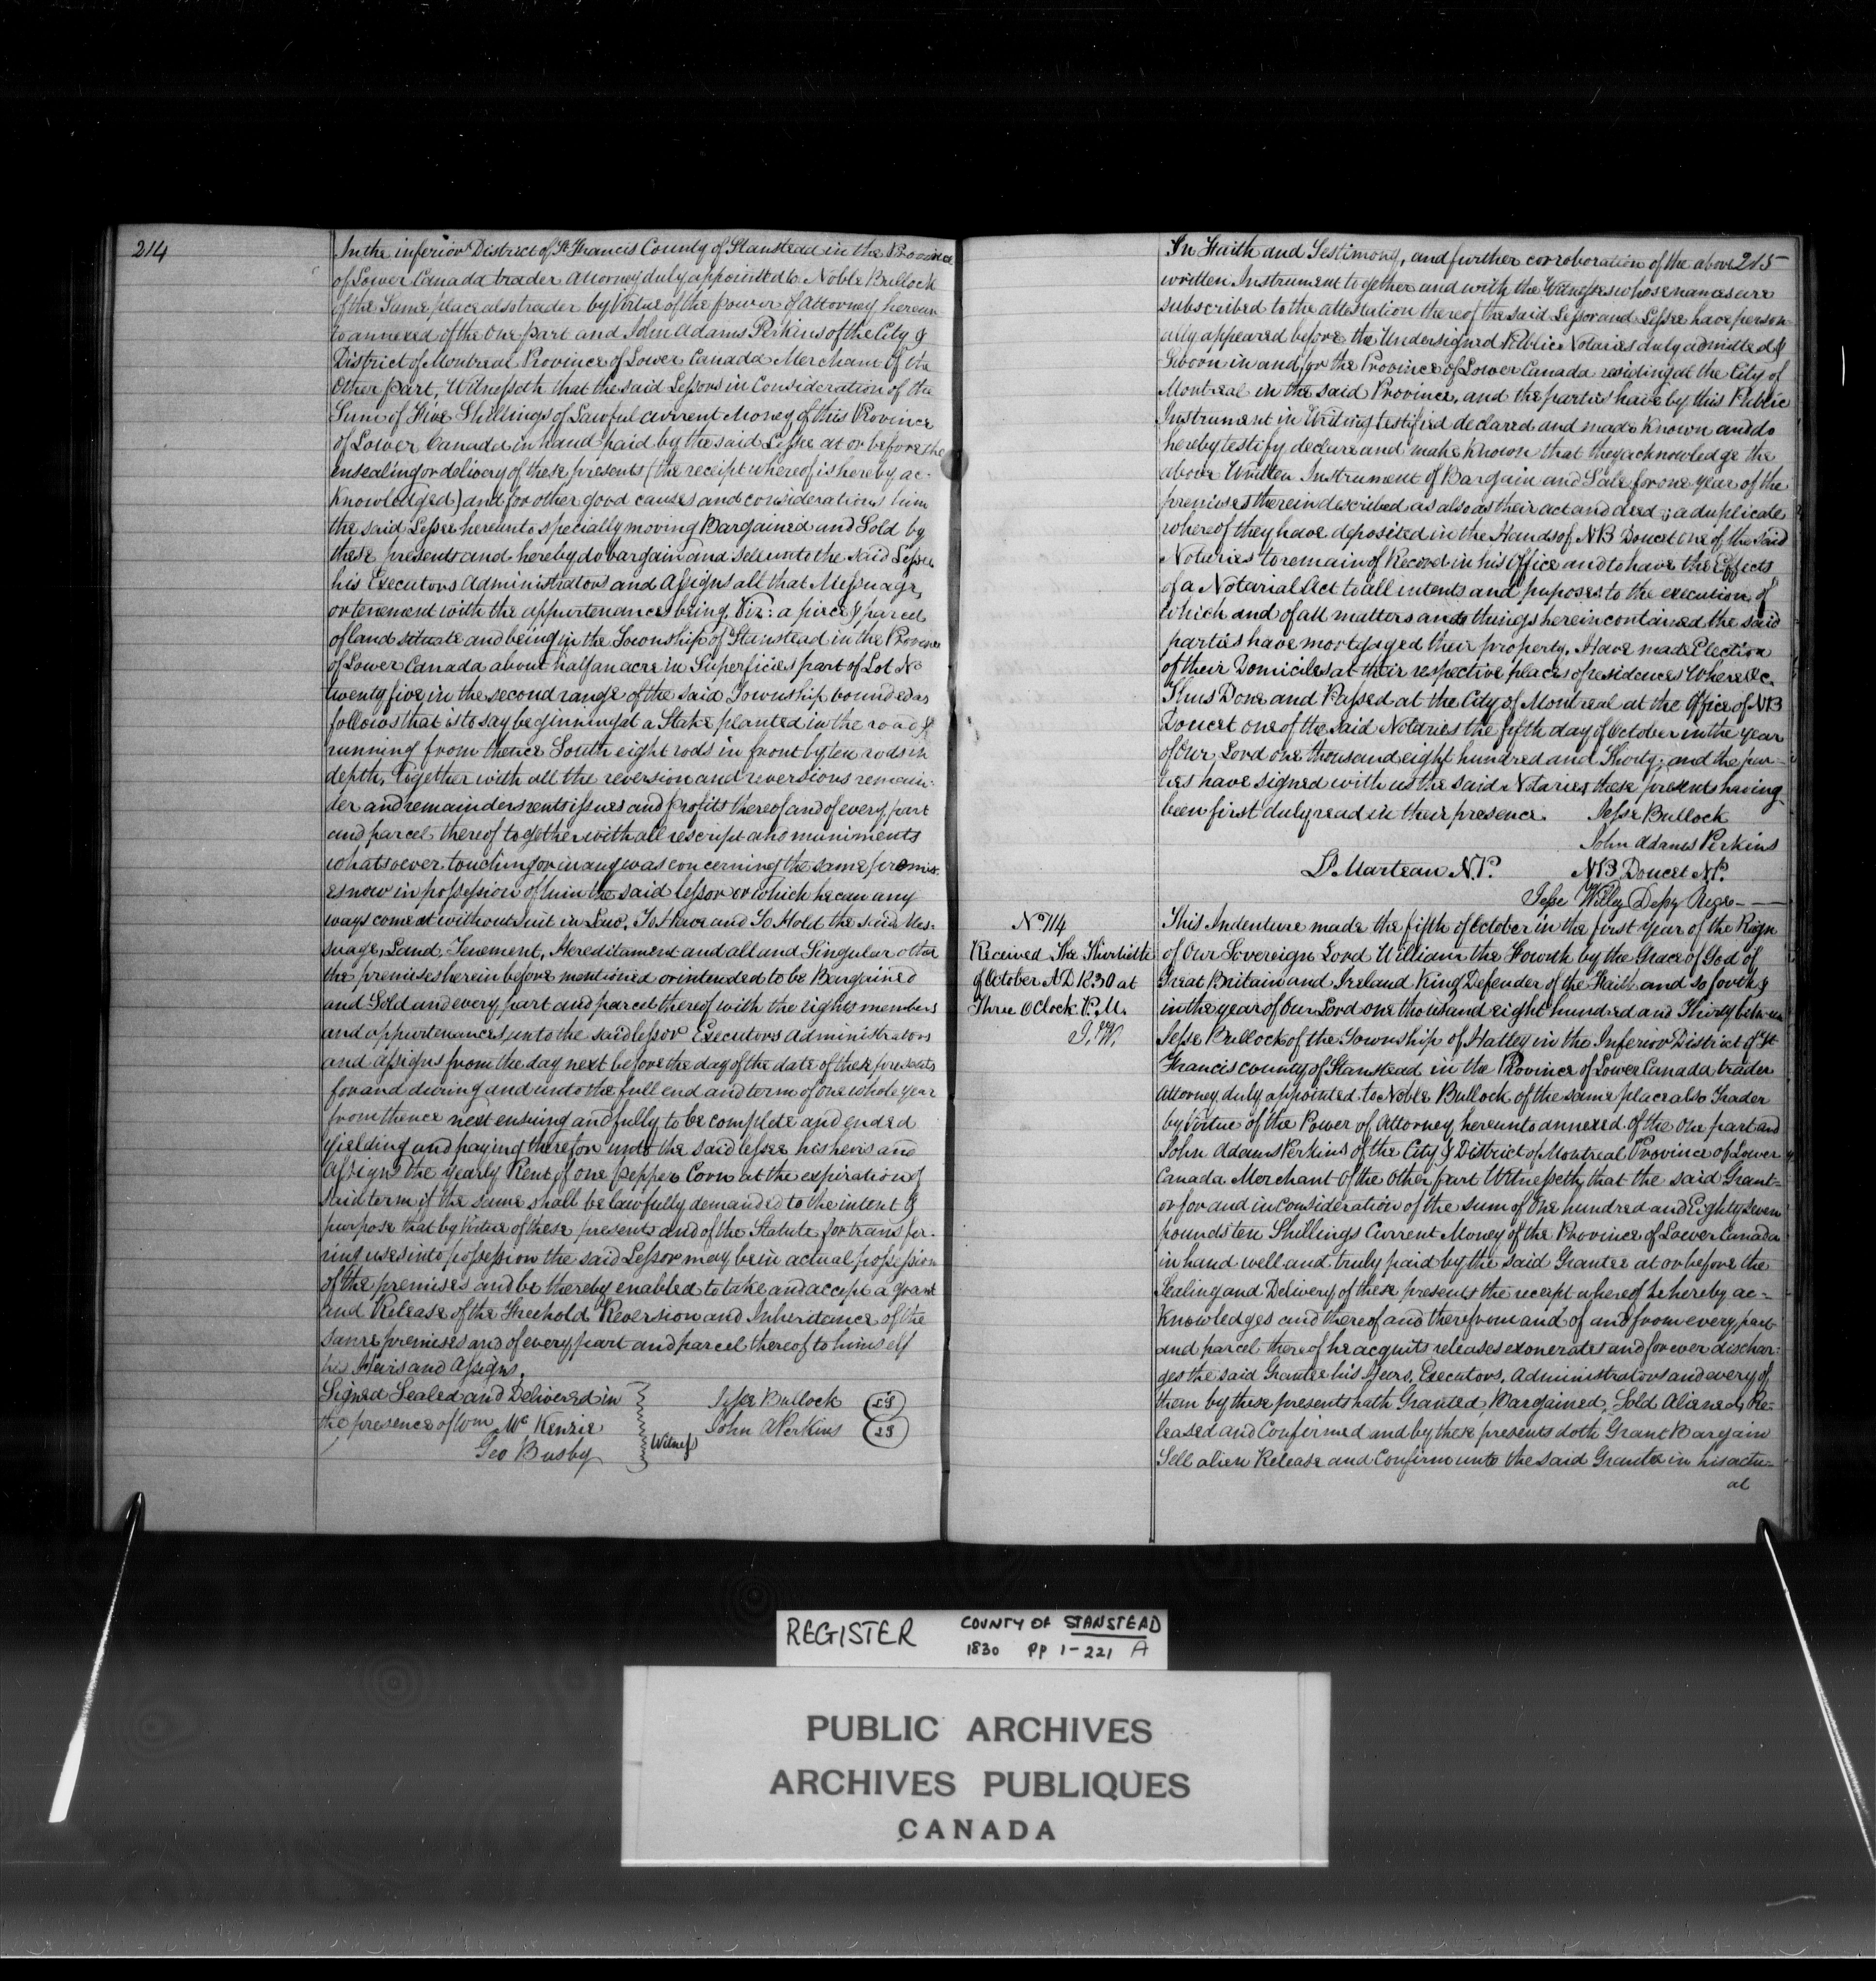 214
In the inferior District of St. Francis County of Stanstead in the Province
of Lower Canada trader Attorney duly appointed to Noble Bullock
of the Same place also trader by Virtue of the power of Attorney hereun
to annexed of the One part and John Adams Perkins of the City &
District of Montreal Province of Lower Canada Merchant of the
Other part, Witnesseth that the said Lessors in Consideration of the
Sum of Five Shillings of Lawful current Money of this Province
of Lower Canada in hand paid by the said Lessee at or before the
ensealing or delivery of these presents (the receipt whereof is hereby ac-
knowledged) and for other good causes and considerations him
the said Lessee hereunto specially moving Bargained and Sold by
these presents and hereby do bargain and sell unto the said Lessee
his Executors Administrators and Assigns all that Messuage,
or tenement with the appurtenances being, Viz: a piece & parcel
of land situate and being in the Township of Stanstead in the Province
of Lower Canada about half an acre in Superficies part of Lot No
twenty five in the second range of the said Township bounded as
follows that is to say beginning at a Stake planted in the road &
running from thence South eight rods in front by ten rods in
depth, Together with all the reversion and reversions remain-
der and remainders rents issues and profits thereof and of every part
and parcel thereof together with all rescript and muniments
whatsoever touching or in any was concerning the same premis-
es now in possession of him the said lessor or which he can any
ways come at without suit in Law. To Have and To Hold the said Mes-
suage, Land, Tenement, Hereditament and all and Singular other
the premises herein before mentioned or intended to be Bargained
and Sold and every part and parcel thereof with the rights members
and appurtenances unto the said lessor Executors Administrators
and assigns from the day next before the day of the date of these presents
for and during and unto the full end and term of one whole year
from thence next ensuing and fully to be complete and ended
yielding and paying therefor unto the said lessee his heirs and
Assigns the yearly Rent of one pepper Corn at the expiration of
said term if the same shall be lawfully demanded to the intent &
purpose that by Virtue of these presents and of the Statute for transfer-
ring uses into possession the said Lessor may be in actual possession
of the premises and be thereby enabled to take and accept a grant
and Release of the Freehold & Reversion and Inheritance of the
same premises and of every part and parcel thereof to himself
his Heirs and Assigns.
Signed Sealed and Delivered in
the presence of Wm Mc Kenzie
Geo Busby
Witness
Jesse Bullock LS
John A Perkins LS
215
In Faith and Testimony, and further corroboration of the above
written Instrument together and with the Witnesses whose names are
subscribed to the attestation thereof the said Lessor and Lessee have person
ally appeared before the Undersigned Public Notaries duly admitted &
Sworn in and for the Province of Lower Canada residing at the City of
Montreal in the said Province, and the parties have by this Public
Instrument in Writing testified declared and made known and do
hereby testify declare and make known that they acknowledge the
above Written Instrument of Bargain and Sale for one year of the
premises therein described as also as their act and deed; a duplicate
whereof they have deposited in the Hands of N B Doucet one of the said
Notaries to remain of Record in his Office and to have the Effects
of a Notarial Act to all intents and purposes to the execution of
which and of all matters and things herein contained the said
parties have mortgaged their property, Have made Election
of their Domiciles at their respective places of residences Where &c.
Thus Done and Passed at the City of Montreal at the Office of N B
Doucet one of the said Notaries the fifth day of October in the year
of Our Lord one thousand eight hundred and Thirty; and the par-
ties have signed with us the said Notaries these presents having
been first duly read in their presence. Jesse Bullock
John Adams Perkins
L. Marteau N.P. N B Doucet N.P.
Jesse Willey Depy Regr
No 114
Received The Thirtieth
of October A D 1830 at
Three O Clock P. M.
J. W.
This Indenture made the fifth of October in the first Year of the Reign
of Our Sovereign Lord William the Fourth by the Grace of God of
Great Britain and Ireland King Defender of the Faith and so forth &
in the year of Our Lord one thousand eight hundred and Thirty between
Jesse Bullock of the Township of Hatley in the Inferior District of St
Francis county of Stanstead in the Province of Lower Canada trader
Attorney duly appointed to Noble Bullock of the same place also Trader
by Virtue of the Power of Attorney hereunto annexed of the One part and
John Adams Perkins of the City & District of Montreal Province of Lower
Canada Merchant of the Other part Witnesseth, that the said Grant-
or for and in consideration of the sum of One hundred and Eighty Seven
pounds ten Shillings Current Money of the Province of Lower Canada
in hand well and truly paid by the said Grantee at or before the
Sealing and Delivery of these presents the receipt whereof he hereby ac-
knowledges and thereof and therefrom and of and from every part
and parcel thereof he acquits releases exonerates and for ever dischar-
ges the said Grantee his Heirs, Executors, Administrators and every of
them by these presents hath Granted, Bargained, Sold Aliened, Re-
leased and Confirmed and by these presents doth Grant Bargain
Sell alien Release and Confirm unto the said Grantee in his actu-
al
REGISTER COUNTY OF STANSTEAD
1830 PP 1-221 A
PUBLIC ARCHIVES
ARCHIVES PUBLIQUES
CANADA